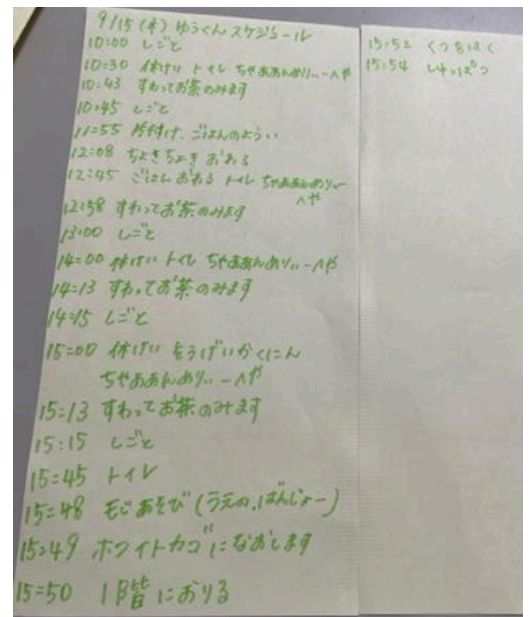 9/15(木) ゆうくんスケジュール
10:00 しごと
10:30 休けい トイレ ちゃああんめりぃーへや
10:43 すわってお茶のみます
10:45 しごと
11:55 片付け、ごはんのようい
12:08 ちょきちょき おわる
12:45 ごはん おわる トイレ ちゃああんめりぃー
へや
12:58 すわってお茶のみます
13:00 しごと
14:00 休けい トイレ ちゃああんめりぃーへや
14:13 すわってお茶のみます
14:15 しごと
15:00 休けい そうげいかくにん
ちゃああんめりぃーへや
15:13 すわってお茶のみます
15:15 しごと
15:45 トイレ
15:48 もじあそび(うえの、ばんじょー)
15:49 ホワイトカゴになおします
15:50 1階におりる
15:52 くつをはく
15:54 しゅっぱつ